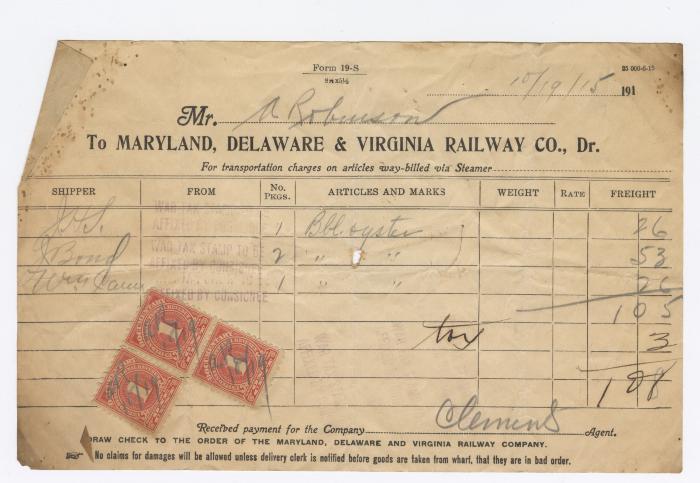 Form 19-S
25 000-6-15
10/19/15 191
Mr. A Robinson
To MARYLAND, DELAWARE & VIRGINIA RAILWAY CO., Dr.
For transportation charges on articles way-billed via Steamer
SHIPPER FROM No. Pkgs. ARTICLES AND MARKS WEIGHT RATE FREIGHT
1 Bbl. oyster 26
WAR TAX STAMP TO BE
AFFIXED BY CONSIGNEE
J Bond 2 " " 53
Wm 1 " " 26
AFFIXED BY CONSIGNEE
105
tax 3
108
Received payment for the Company Clement Agent.
DRAW CHECK TO THE ORDER OF THE MARYLAND, DELAWARE AND VIRGINIA RAILWAY COMPANY.
No claims for damages will be allowed unless delivery clerk is notified before goods are taken from wharf, that they are in bad order.